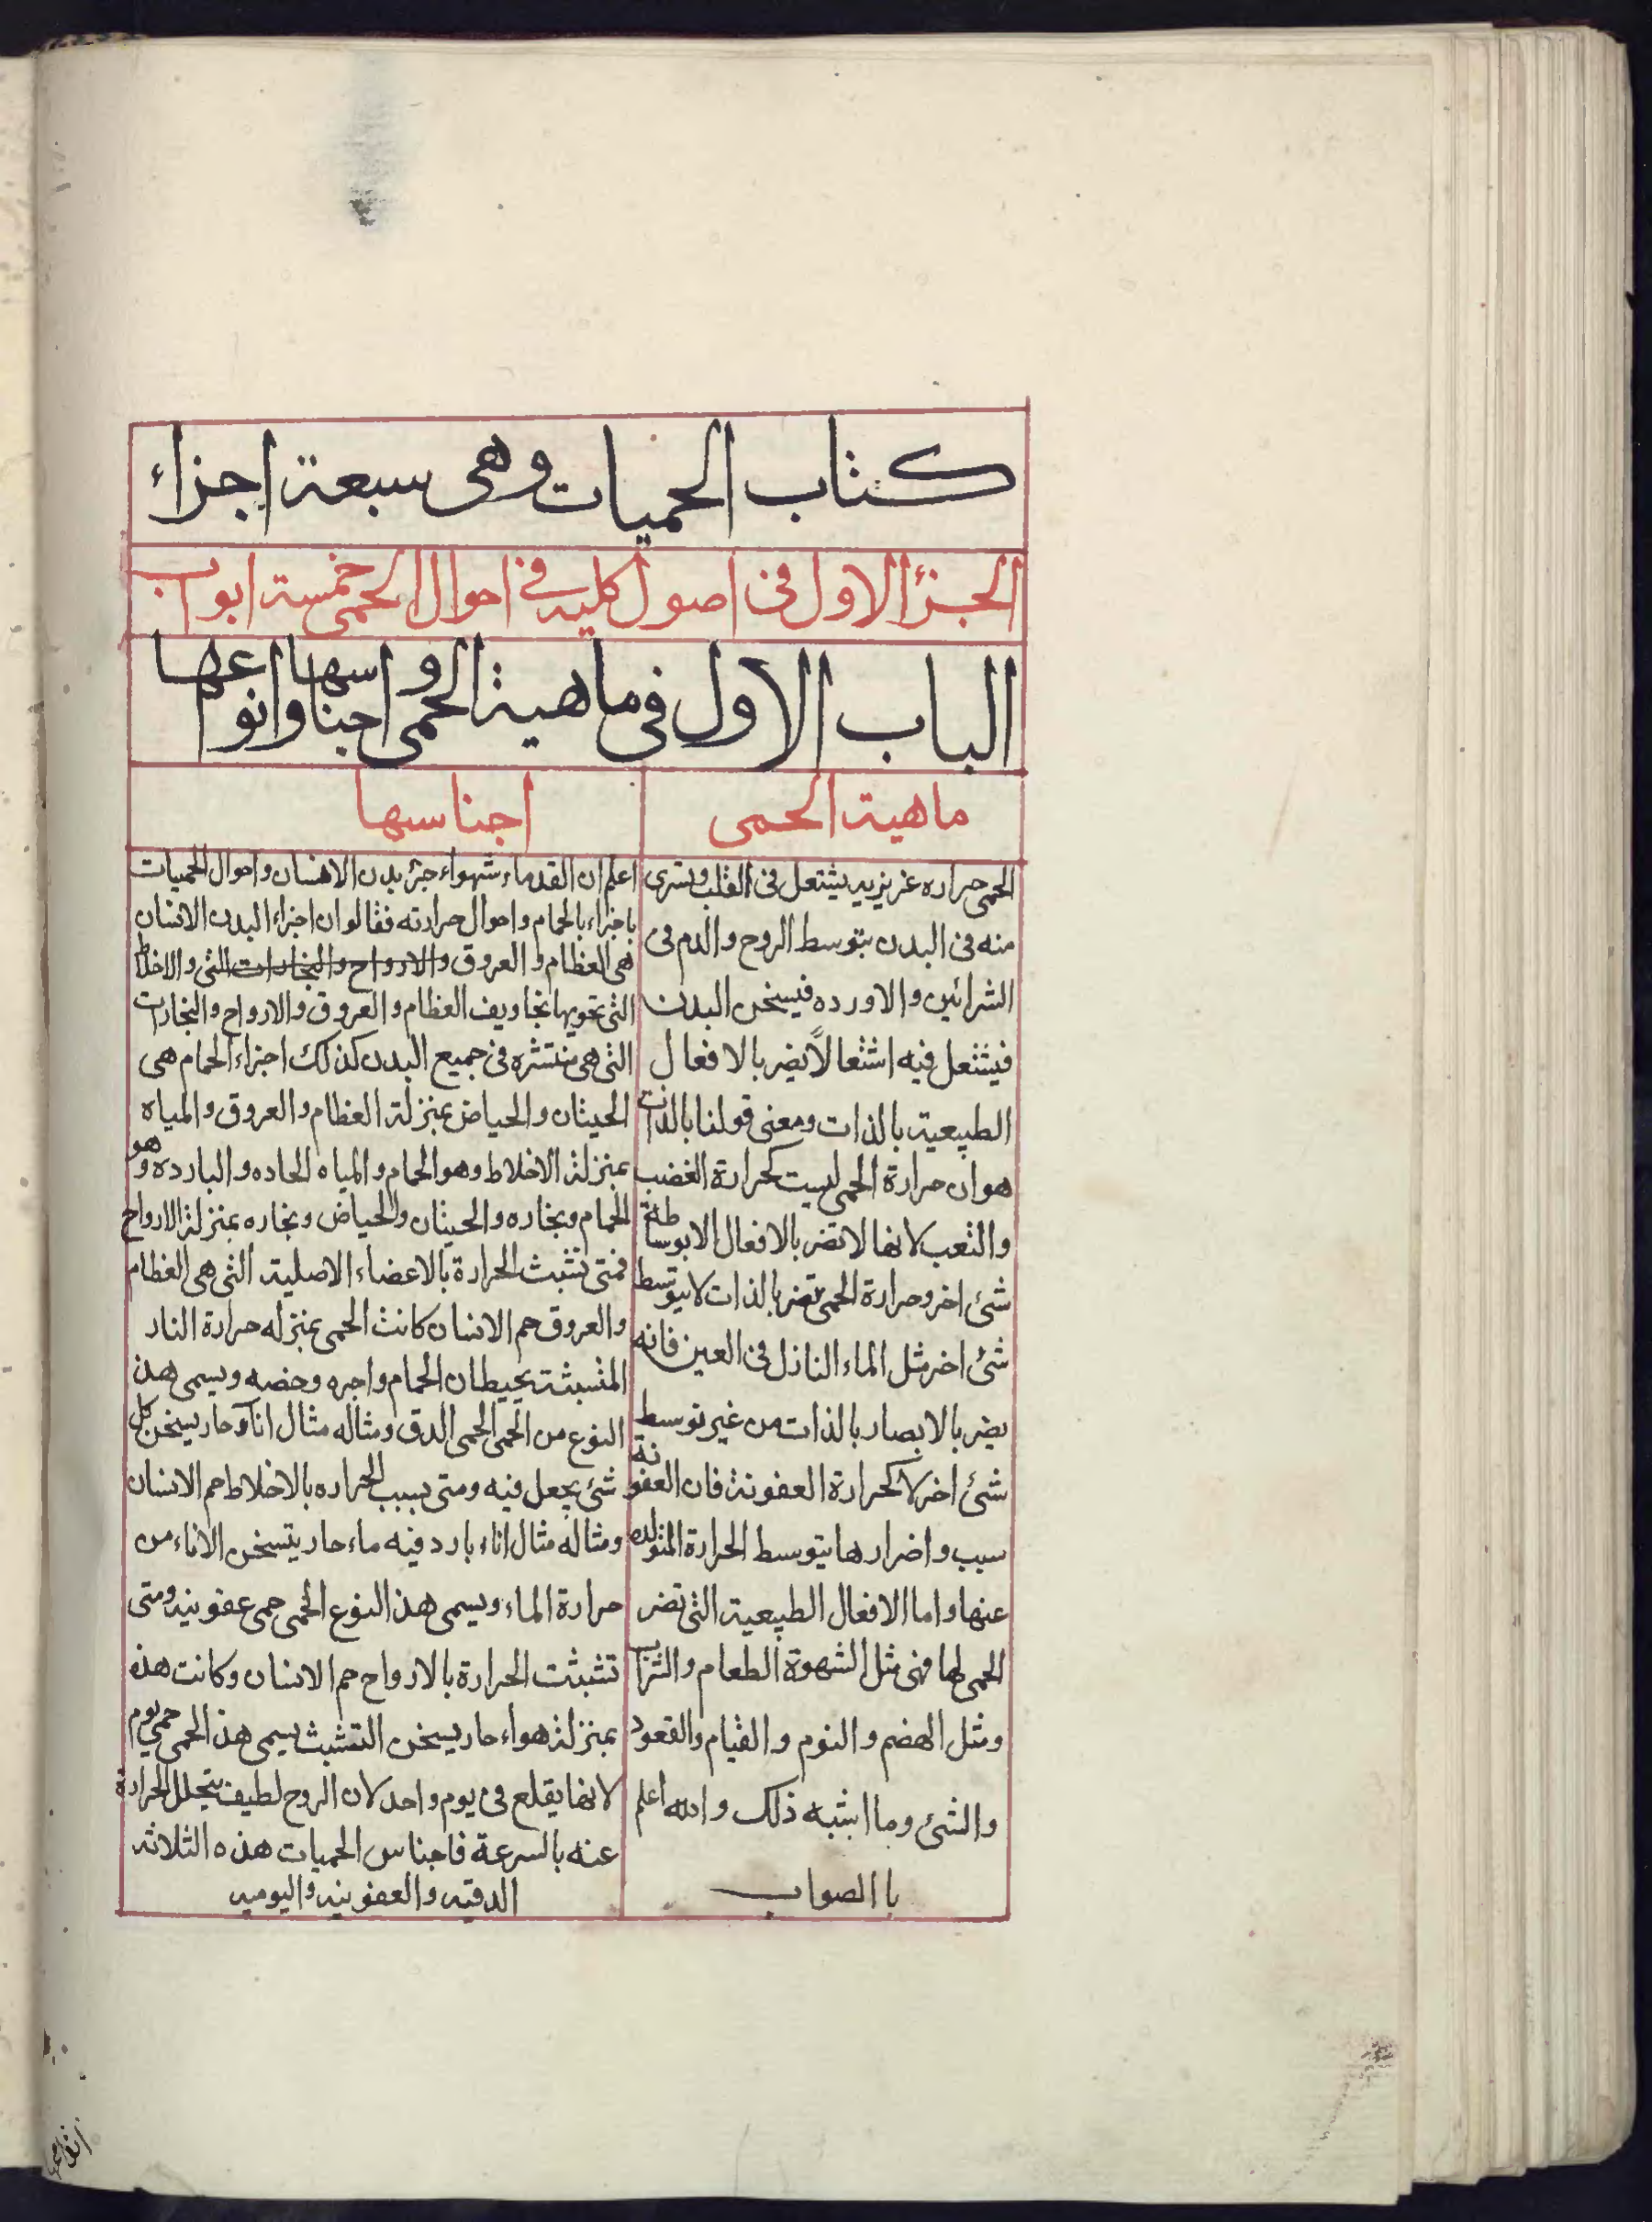 كتاب الحميات وهى سبعة اجزاء
الجزء الاول فى اصول كليه فى احوال الحمى خمسة ابواب
الباب الاول فى ماهية الحمى و اجناسها وانواعها
ماهية الحمى
الحمى حراره غريزيه يشتعل فى القلب ويسرى
منه فى البدن بتوسط الروح والدم فى
الشرائين والاورده فيسخن البدن
فيشتعل فيه اشتعالاً يضر بالافعال
الطبيعية بالذات ومعنى قولنا بالذات
هو ان حرارة الحمى ليست كحرارة الغضب
والتعب لانها لا تضر بالافعال الا بوساطة
شئ اخر وحرارة الحمى تضر بالذات لا بتوسط
شئ اخر مثل الماء النازل فى العين فانه
يضر بالابصار بالذات من غير توسط
شئ اخر لا كحرارة العفونة فان العفونة
سبب واضرارها بتوسط الحرارة المتولده
عنها واما الافعال الطبيعية التى تضر
الحمى لها فهى مثل الشهوة الطعام والشراب
ومثل الهضم والنوم والقيام والقعود
والشئ وما اشبه ذلك والله اعلم
با الصواب
اجناسها
اعلم ان القدماء شبهواء جزء بدن الانسان واحوال الحميات
باجزاء بالحمام واحوال حرارته فقالوا ان اجزاء البدن الانسان
هى العظام والعروق والارواح والبخارات التى والاخلاط
التى تحويها تجاويف العظام والعروق والارواح والبخارات
التى هى منتشره فى جميع البدن كذلك اجزاء الحمام هى
الحيثان والحياض بمنزلة العظام والعروق والمياه
بمنزلة الاخلاط وهو الحمام والمياه الحاده والبارده وهو
الحمام وبخاره والحيثان والحياض وبخاره بمنزلة الارواح
فمتى تشبث الحرارة بالاعضاء الاصلية التى هى العظام
والعروق حم الانسان كانت الحمى بمنزله حرارة النار
المتسبثة بحيطان الحمام واجره وحضه ويسمى هذ
النوع من الحمى الحمى الدق ومثاله مثال اناء حار يسخن كل
شئ يجعل فيه ومتى بسبب الحراره بالاخلاط حم الانسان
ومثاله مثال اناء بارد فيه ماء حار يتسخن الاناء من
حرارة الماء ويسمى هذ النوع الحمى حمى عفونيه ومتى
تشبثت الحرارة بالارواح حم الانسان وكانت هذه
بمنزلة هواء حار يسخن التشبث يسمى هذ الحمى حمى يوم
لانها يقلع فى يوم واحد لان الروح لطيف يتحلل الحرارة
عنه بالسرعة فاجناس الحميات هذه الثلاثه
الدقيه والعفونيه واليوميه